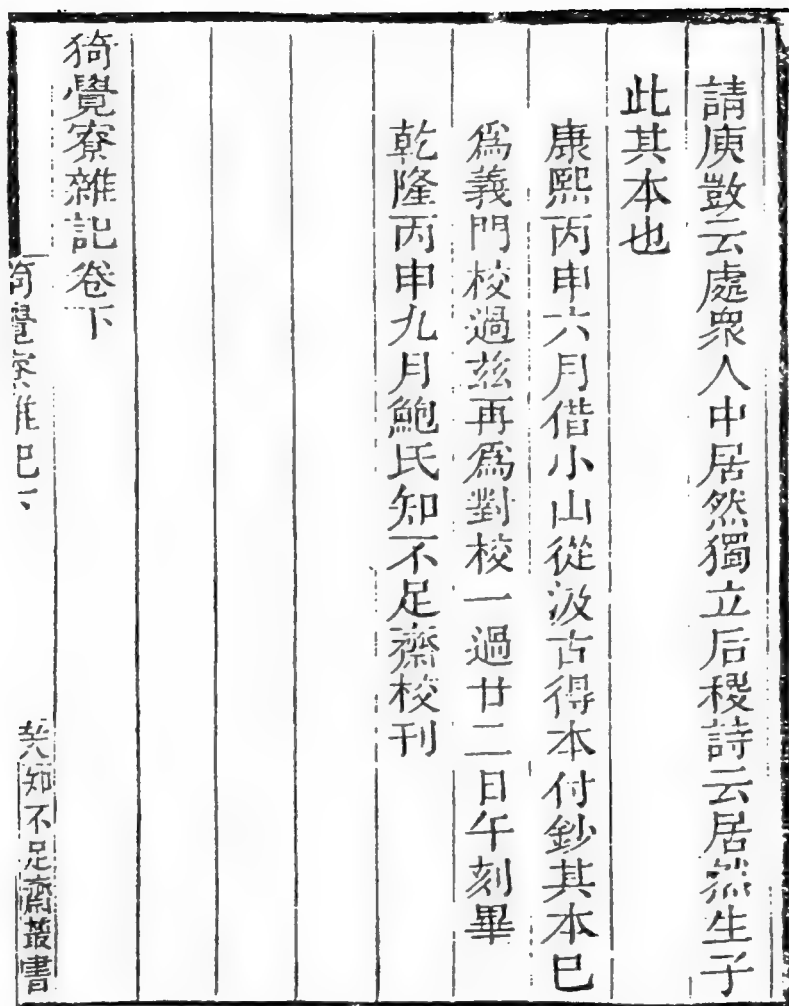 請庾敳云處衆人中居然獨立后稷詩云居然生子
此其本也
康熙丙申六月借小山從汲古得本付鈔其本已
爲義門校過茲再爲對校一過廿二日午刻畢
乾隆丙申九月鮑氏知不足齋校刊
猗覺寮雜記卷下
猗覺寮雜記下
知不足齋叢書